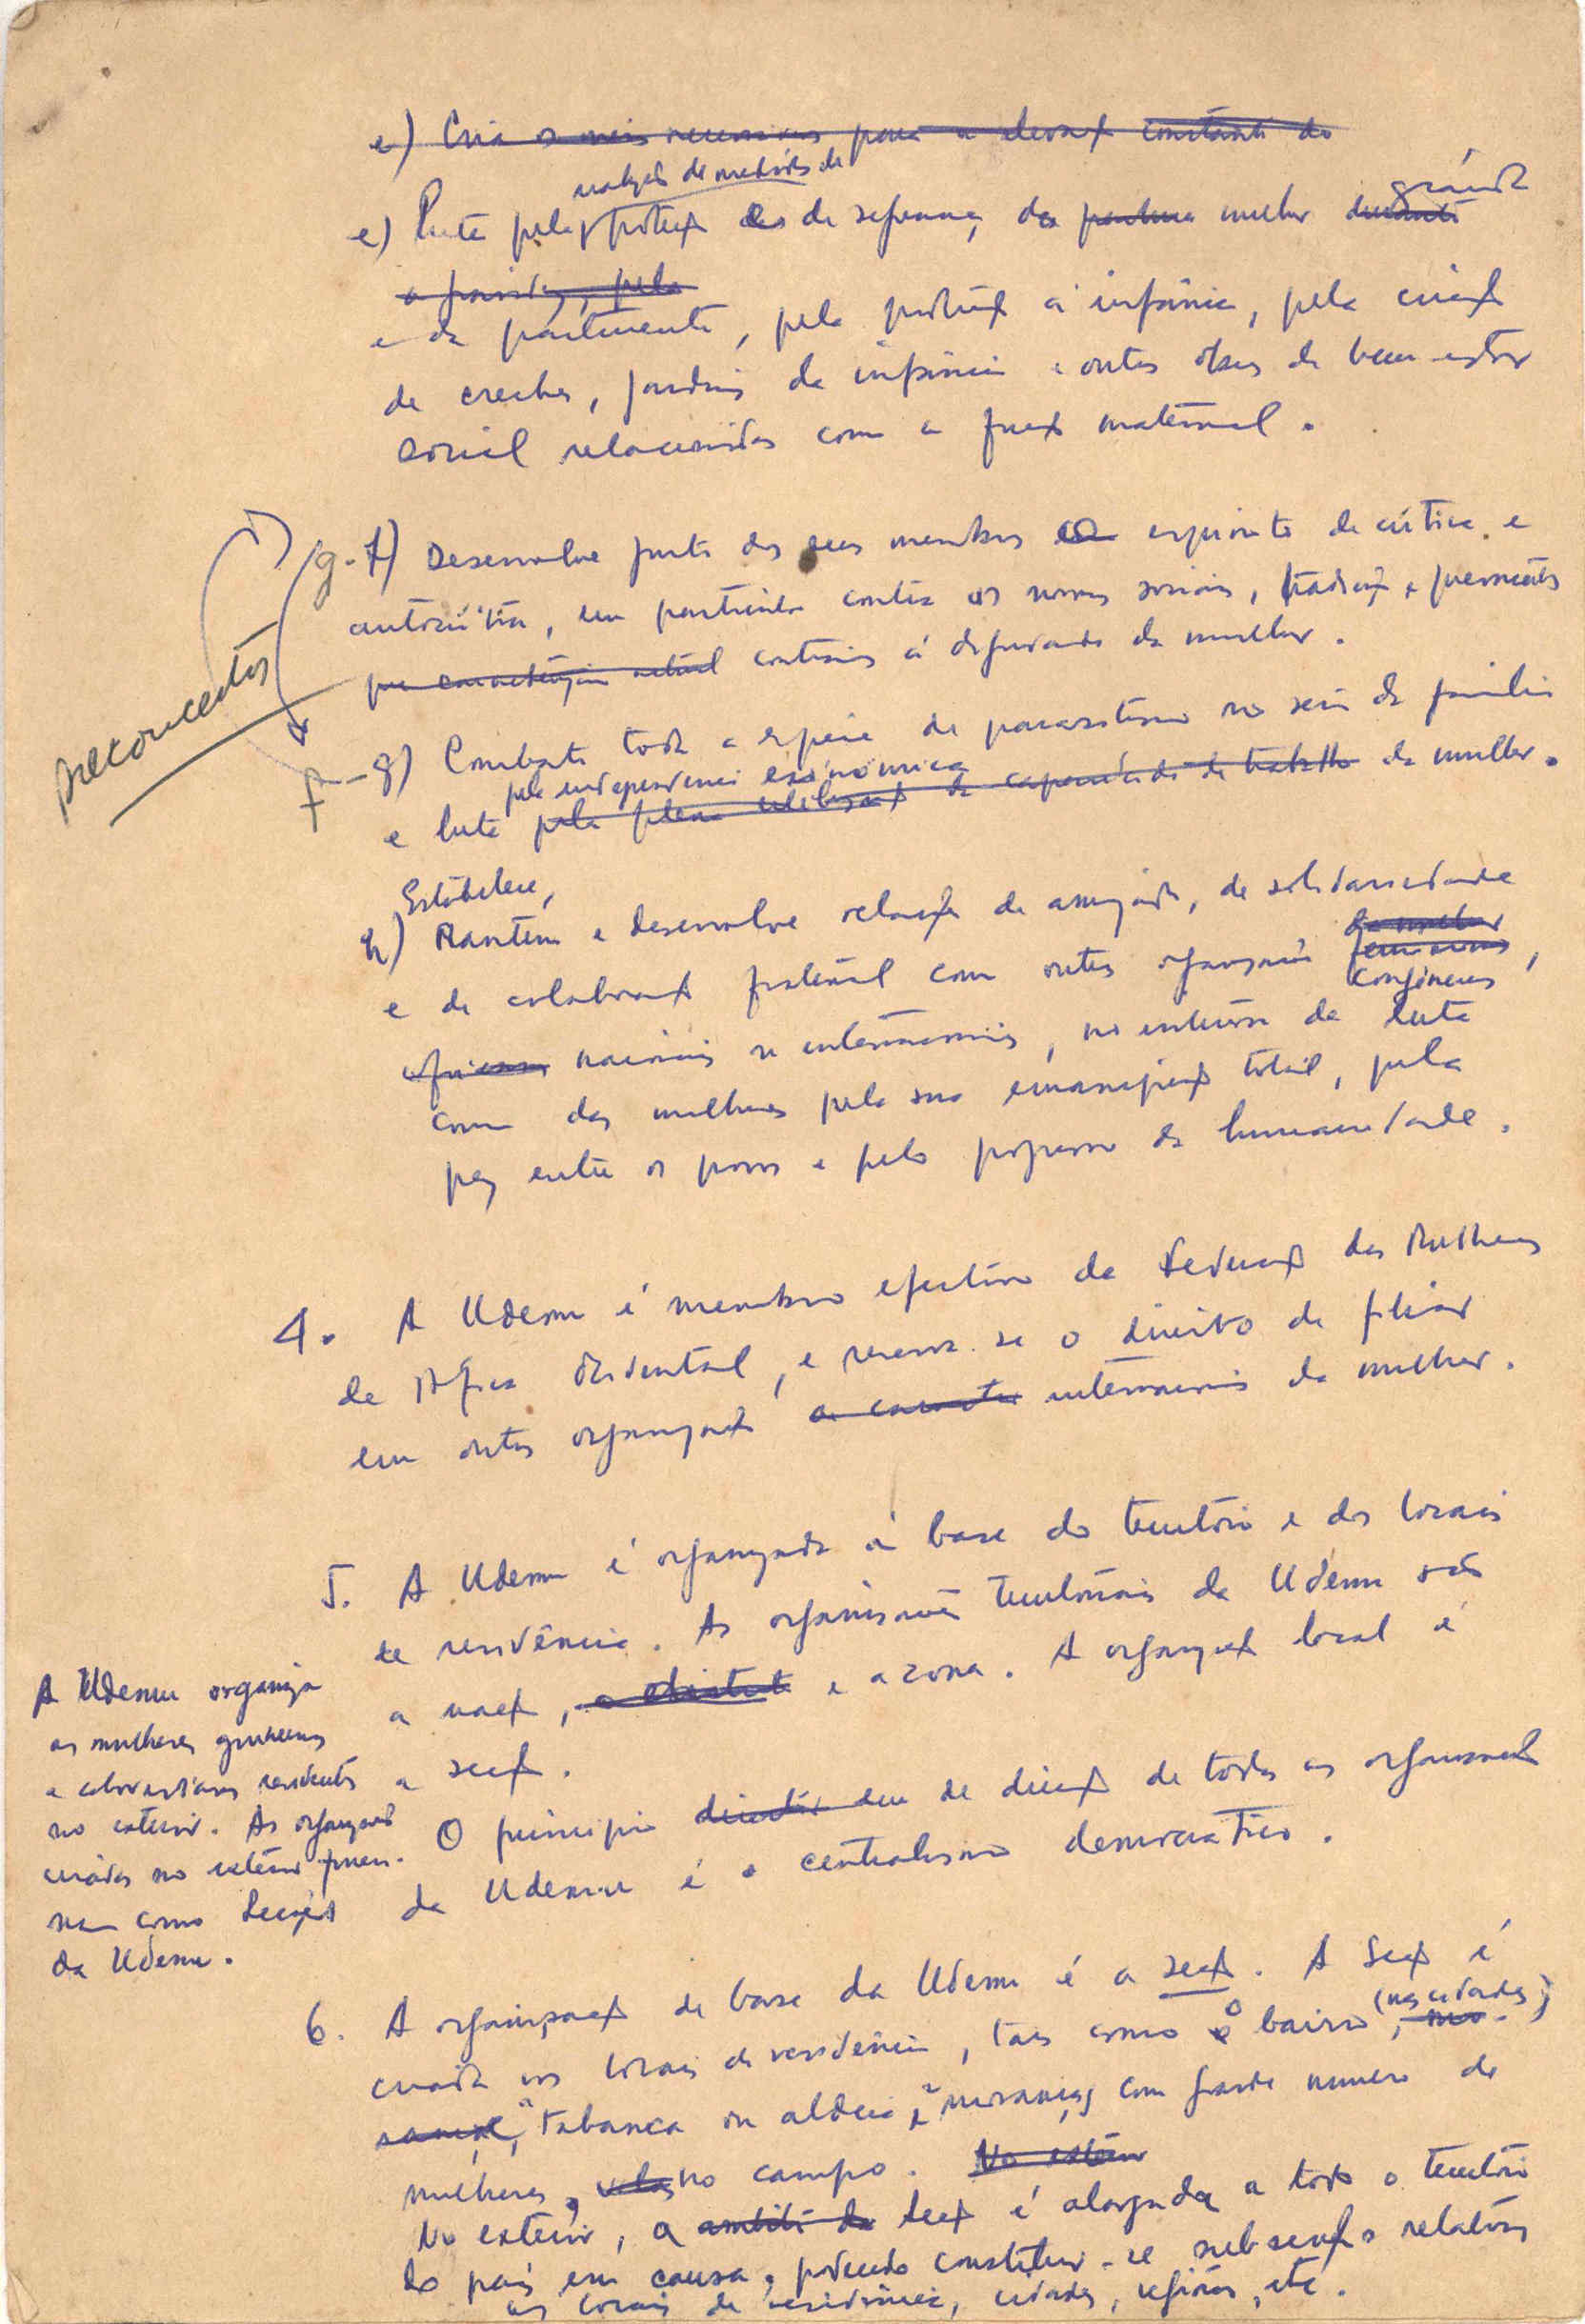 e) Cria os meios necessários para a elevação constante do
realização de medidas de
e) Luta pela proteção e de segurança da mulher grávida
durante
a gravidez, pela
e da parturiente, pela proteção à infância, pela criação
de creches, jardins da infância e outras obras de bem-estar
social relacionadas com a função maternal.
g-f) Desenvolve junto dos seus membros o espírito de crítica e
autocrítica, em particular contra as normas sociais, tradições e preconceitos
contrários à dignidade da mulher.
preconceitos
f-g) Combate toda a espécie de parasitismo no seio da família
pela independência económica
e luta pela plena utilização da capacidade de trabalho da mulher.
Estabelece,
h) Mantém e desenvolve relações de amizade, de solidariedade
da mulher
e de colaboração fraternal com outras organizações femininas,
congéneres
africanas nacionais ou internacionais, no interesse da luta
comum das mulheres pela sua emancipação total, pela
paz entre os povos e pelo progresso da humanidade.
4. A Udemu é membro efectivo da Federação das Mulheres
de África Ocidental, e reserva-se o direito de filiar
em outras organizações de carácter internacionais da mulher.
5. A Udemu é organizada à base do território e dos locais
de residência. As organizações territoriais da Udemu são
a nação, e a zona. A organização local é
a secção.
O princípio de direcção de todas as organizações
da Udemu é o centralismo democrático.
A Udemu organiza
as mulheres guineenses
e caboverdianas residentes
no exterior. As organizações
criadas no exterior funcio-
nam como Secções
da Udemu.
6. A organização de base da Udemu é a secção. A Secção é
criada nos locais de residência, tais como o bairro (nas cidades),
tabanca ou aldeia, morança, com grande número de
mulheres, no campo. No exterior
No exterior, a âmbito da Secção é alargada a todo o território
do país em causa, podendo constituir-se subsecções relativas
aos locais de residência, cidades, regiões, etc.